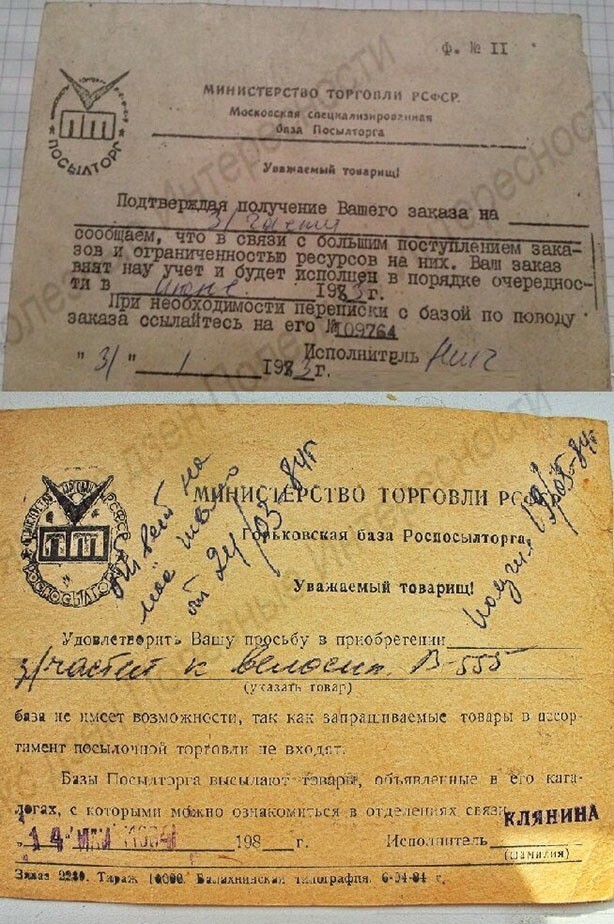 Ф. № II
ПОСЫЛТОРГ
МИНИСТЕРСТВО ТОРГОВЛИ РСФСР.
Московская специализированная
база Посылторга
Уважаемый товарищ!
Подтверждая получение Вашего заказа на
З/части
сообщаем, что в связи с большим поступлением зака-
зов и ограниченностью ресурсов на них. Ваш заказ
взят нау учет и будет исполнен в порядке очереднос-
ти в июне 1983г.
При необходимости переписки с базой по поводу
заказа ссылайтесь на его №109764
Исполнитель
"31" 1 1983г.
МИНИСТЕРСТВО ТОРГОВЛИ РСФСР
РОСПОСЫЛТОРГ
Горьковская база Роспосылторга,
Уважаемый товарищ!
ответ на
моё письмо
от 24/03-84г
Удовлетворить Вашу просьбу в приобретении
з/частей к велосип. В-555
(указать товар)
база не имеет возможности, так как запрашиваемые товары в ассор-
тимент посылочной торговли не входят.
Базы Посылторга высылают товары, объявленные в его ката-
логах, с которыми можно ознакомиться в отделениях связи.
14 МАЙ 1984 198 г. Исполнитель КЛЯНИНА
(фамилия)
Заказ 2240. Тираж 10000. Балахнинская типография. 6-04-84 г.